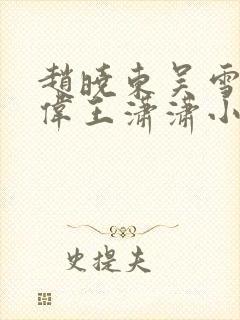 趙曉東吳雪
偉王瀟瀟小
史提夫